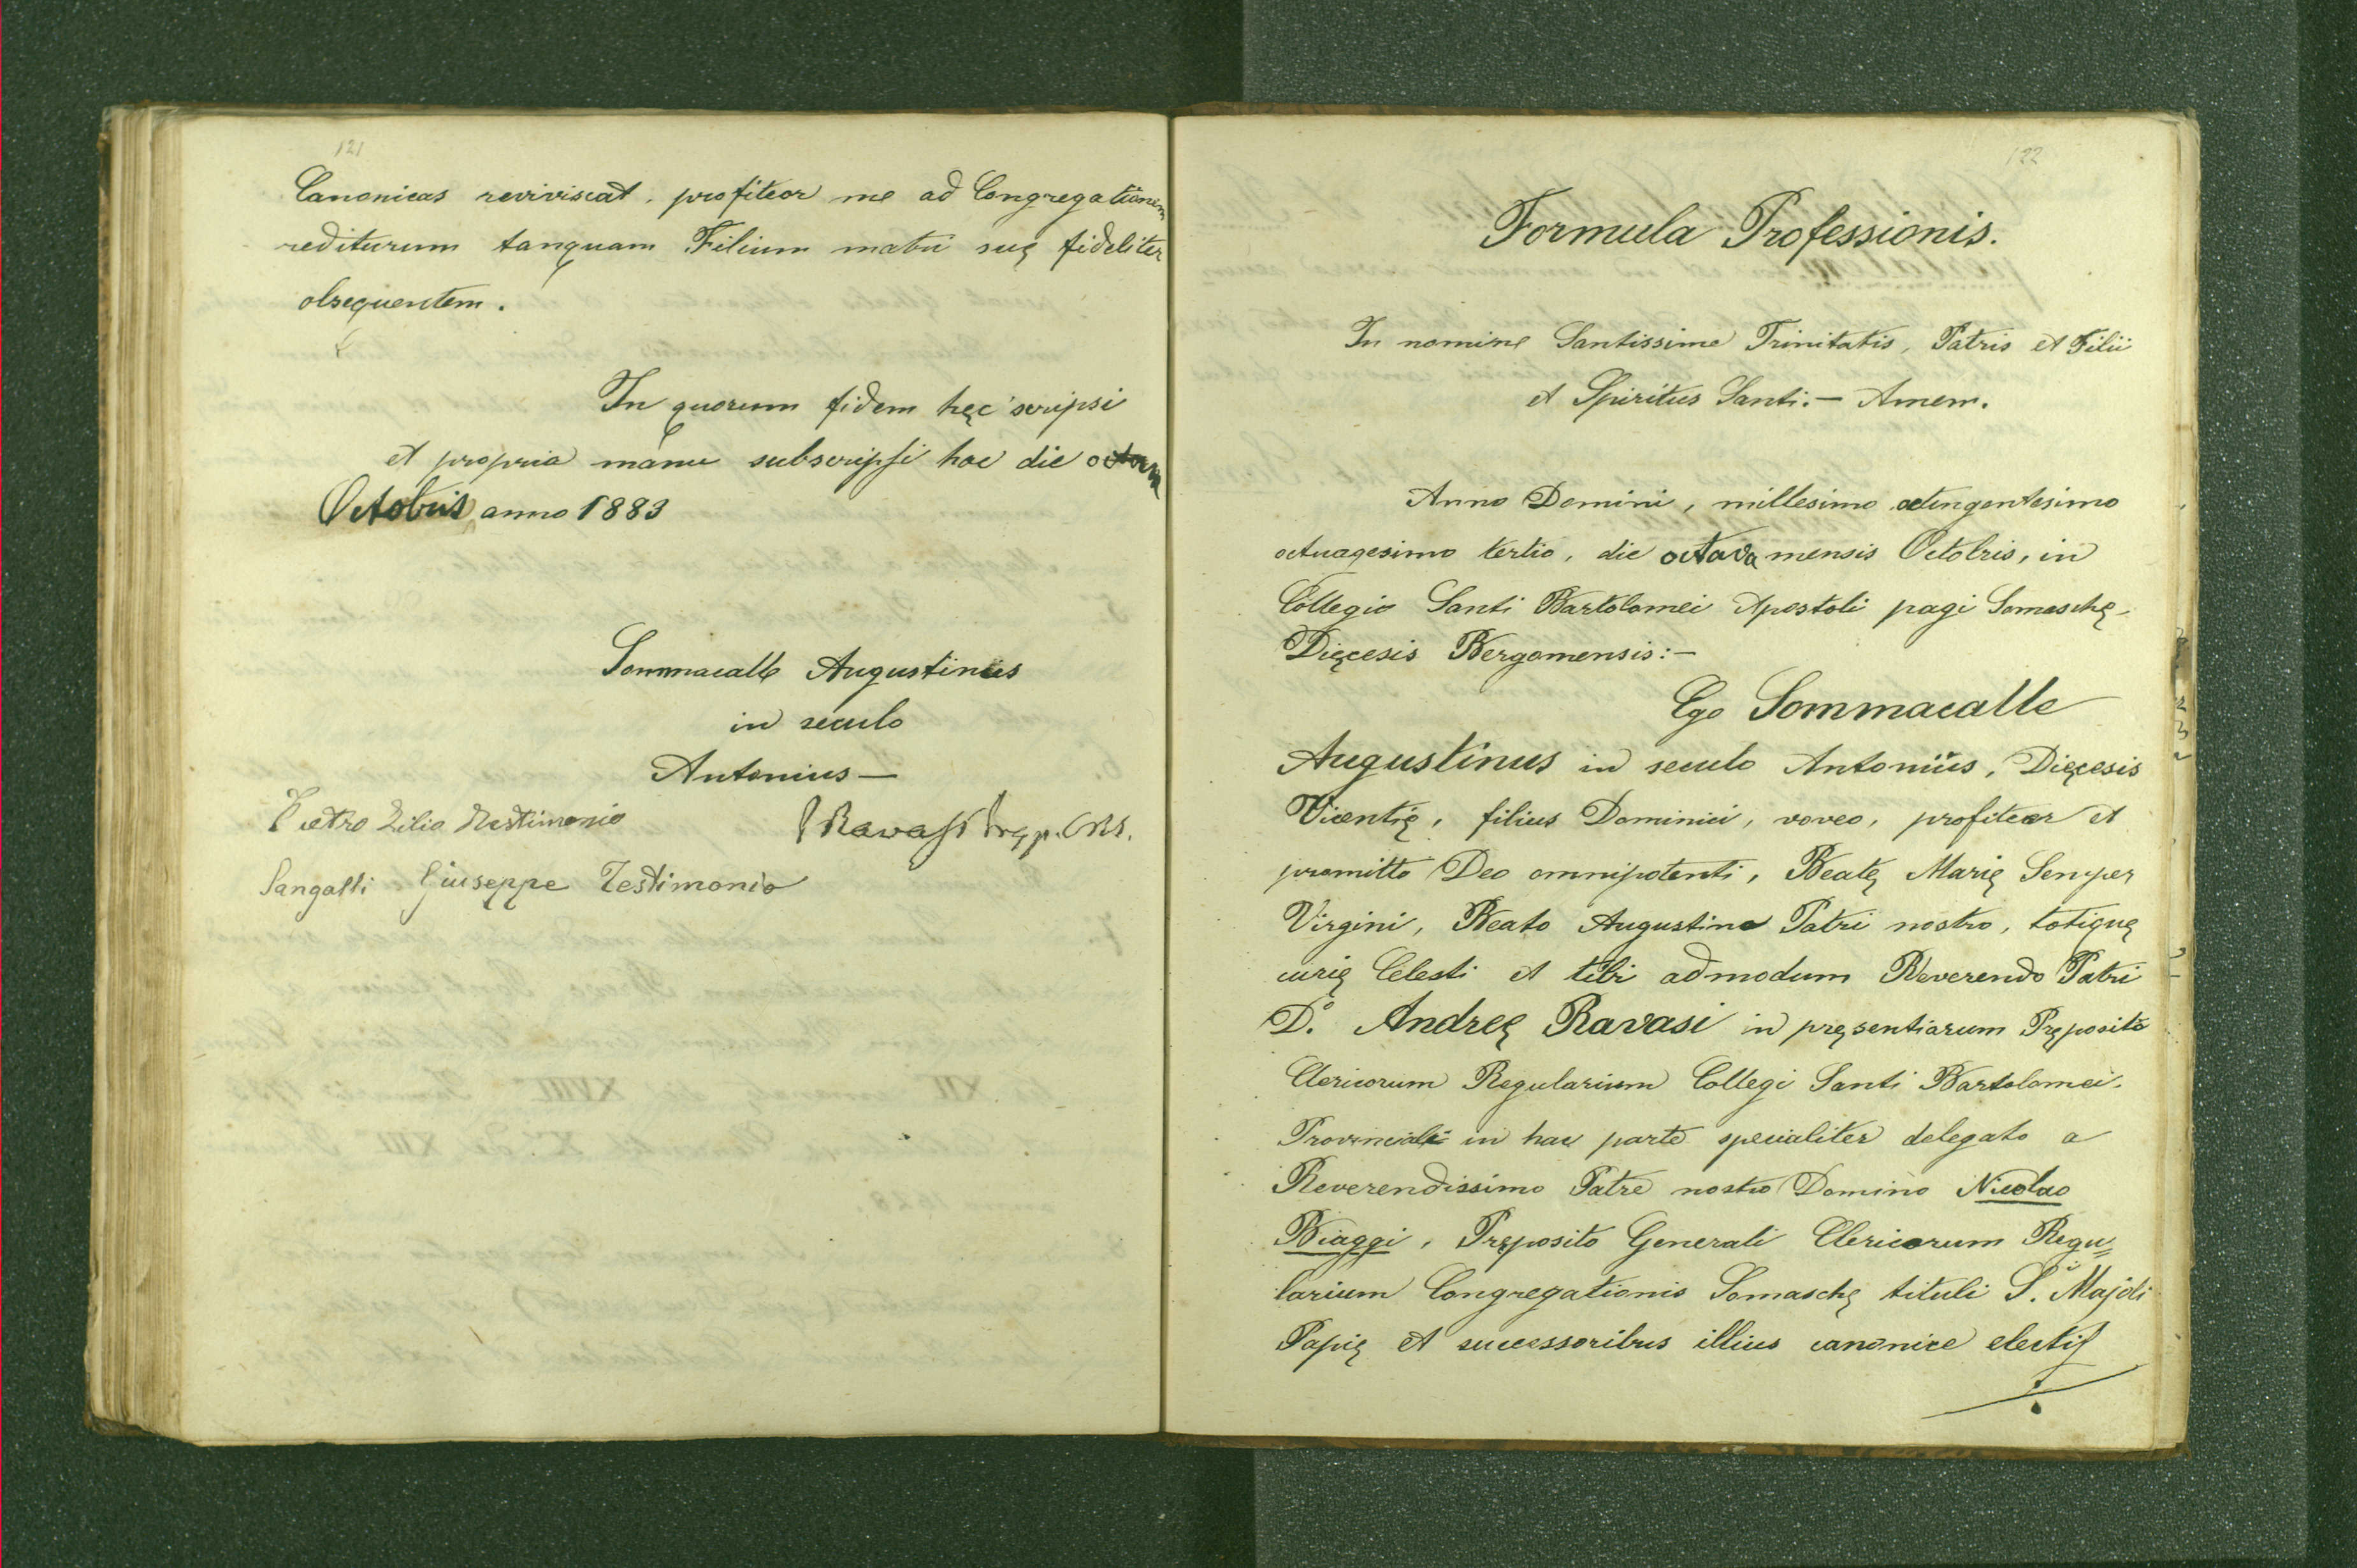 121
Canonicas reviviscat, profiteor me ad Congregationem
rediturum tanquam Filium matri suę fideliter
obsequentem.
In quorum fidem hęc scripsi
et propria manu subscripsi hac die octava
Octobris anno 1883
Sommacalle Augustinus
in seculo
Antonius —
Pietro Zilio Testimonio
Ravasi Prep. p. CRS.
Sangalli Giuseppe Testimonio
122
Formula Professionis.
In nomine Santissime Trinitatis, Patris et Filii
et Spiritus Santi. — Amen.
Anno Domini, millesimo octingentesimo
octuagesimo tertio, die octava mensis Octobris, in
Collegio Santi Bartolomei Apostoli pagi Somaschę
Dięcesis Bergomensis: —
Ego Sommacalle
Augustinus in seculo Antonius, Dięcesis
Vicentię, filius Dominici, voveo, profiteor et
promitto Deo omnipotenti, Beatę Marię Semper
Virgini, Beato Augustino Patri nostro, totiquę
curię Celesti et tibi admodum Reverendo Patri
D.º Andreę Ravasi in pręsentiarum Pręposito
Clericorum Regularium Collegi Santi Bartolomei.
Provinciali in hac parte specialiter delegato a
Reverendissimo Patre nostro Domino Nicolao
Biaggi, Pręposito Generali Clericorum Regu=
larium Congregationis Somaschę tituli S.i Majoli
Papię et successoribus illius canonice electis